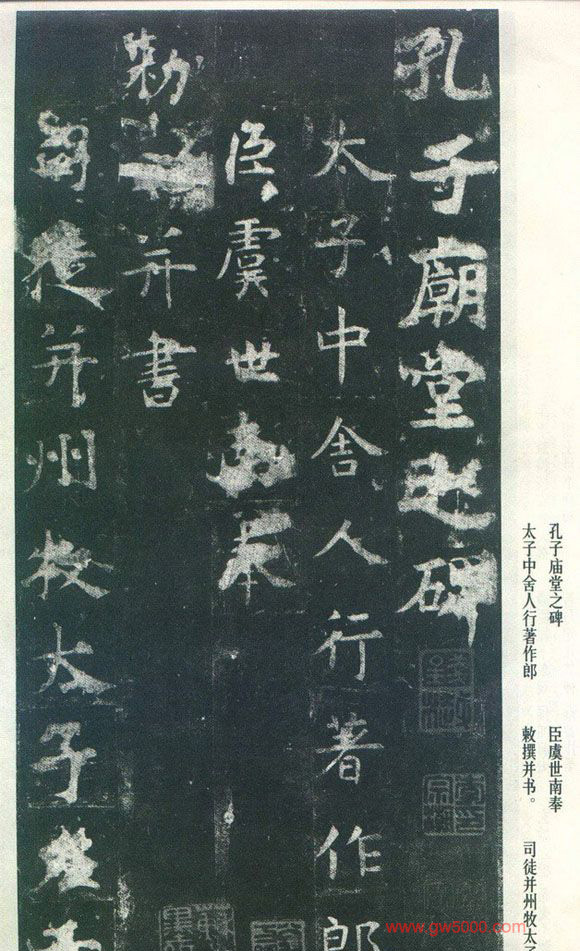 孔子廟堂之碑
太子中舍人行著作郎
臣虞世南奉
勅撰并書
司徒并州牧太子左千
孔子庙堂之碑
太子中舍人行著作郎
臣虞世南奉
敕撰并书。
司徒并州牧太子
www.gw5000.com